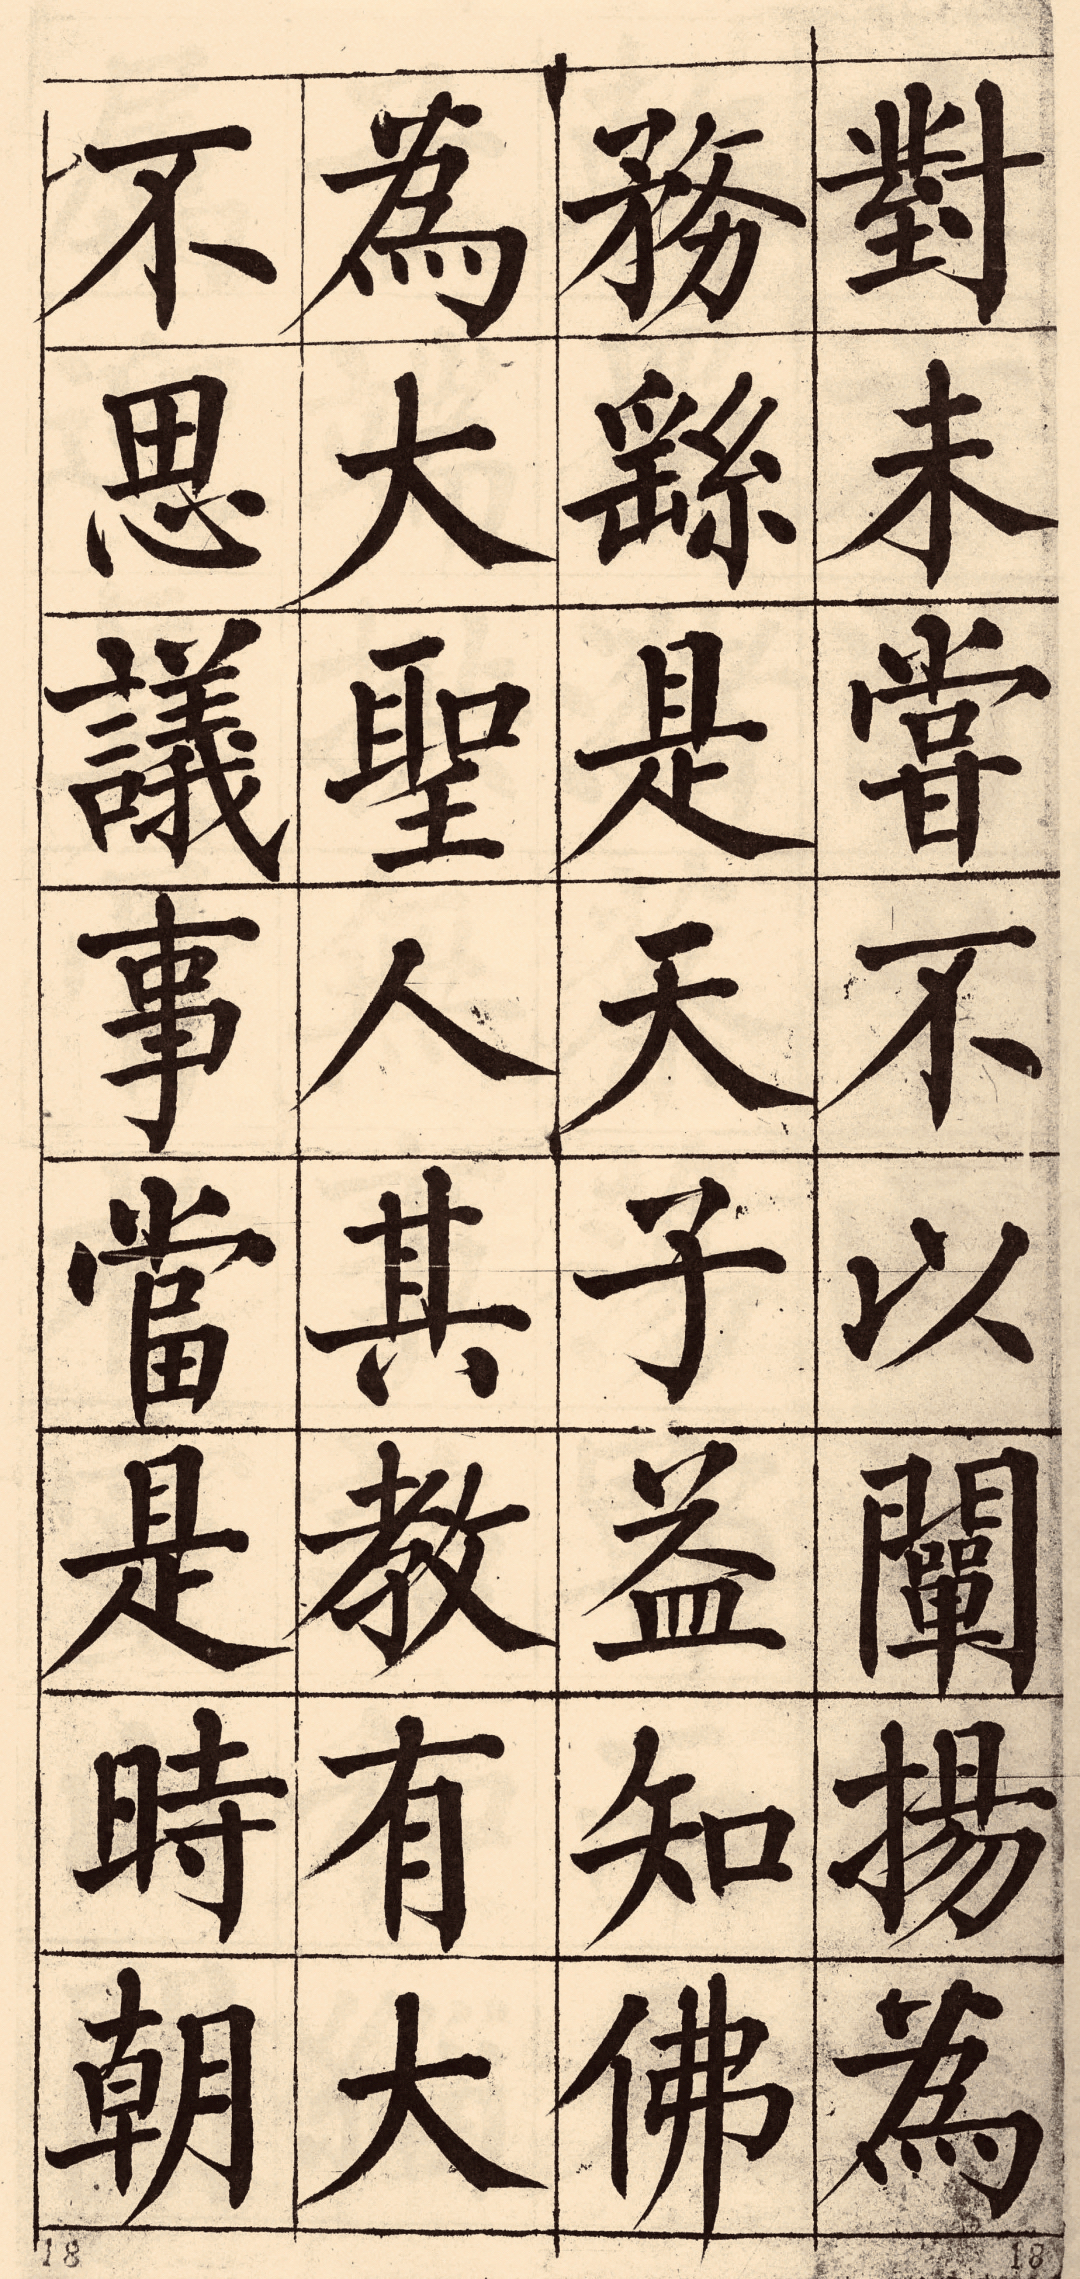 對未嘗不以闡揚為
務繇是天子益知佛
為大聖人其教有大
不思議事當是時朝
18
18